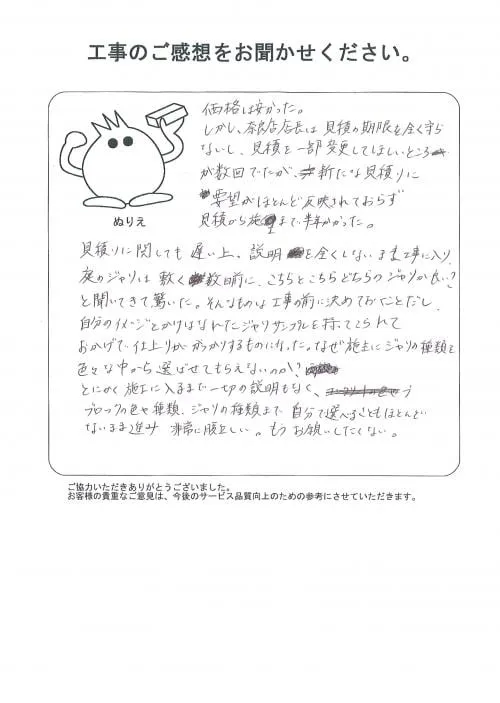 工事のご感想をお聞かせください。
価格は安かった。
しかし、奈良店店長は見積の期限を全く守ら
ないし、見積を一部変更してほしいところ
が数回でたが、新たな見積りに
要望がほとんど反映されておらず
見積から施工まで半年かかった。
ぬりえ
見積りに関しても遅い上、説明を全くしないまま工事に入り、
庭のジャリは敷く数日前に、こちらとこちらどちらのジャリが良い?
と聞いてきて、驚いた。そんなものは工事の前に決めておくことだし、
自分のイメージとかけはなれたジャリサンプルを持ってこられて
おかげで仕上りがガッカリするものになった。なぜ施主にジャリの種類を
色々な中から選ばせてもらえないのか?
とにかく施工に入るまで一切の説明もなく、
ブロックの色や種類、ジャリの種類まで自分で選べることもほとんど
ないまま進み 非常に腹立しい。もうお願いしたくない。
ご協力いただきありがとうございました。
お客様の貴重なご意見は、今後のサービス品質向上のための参考にさせていただきます。